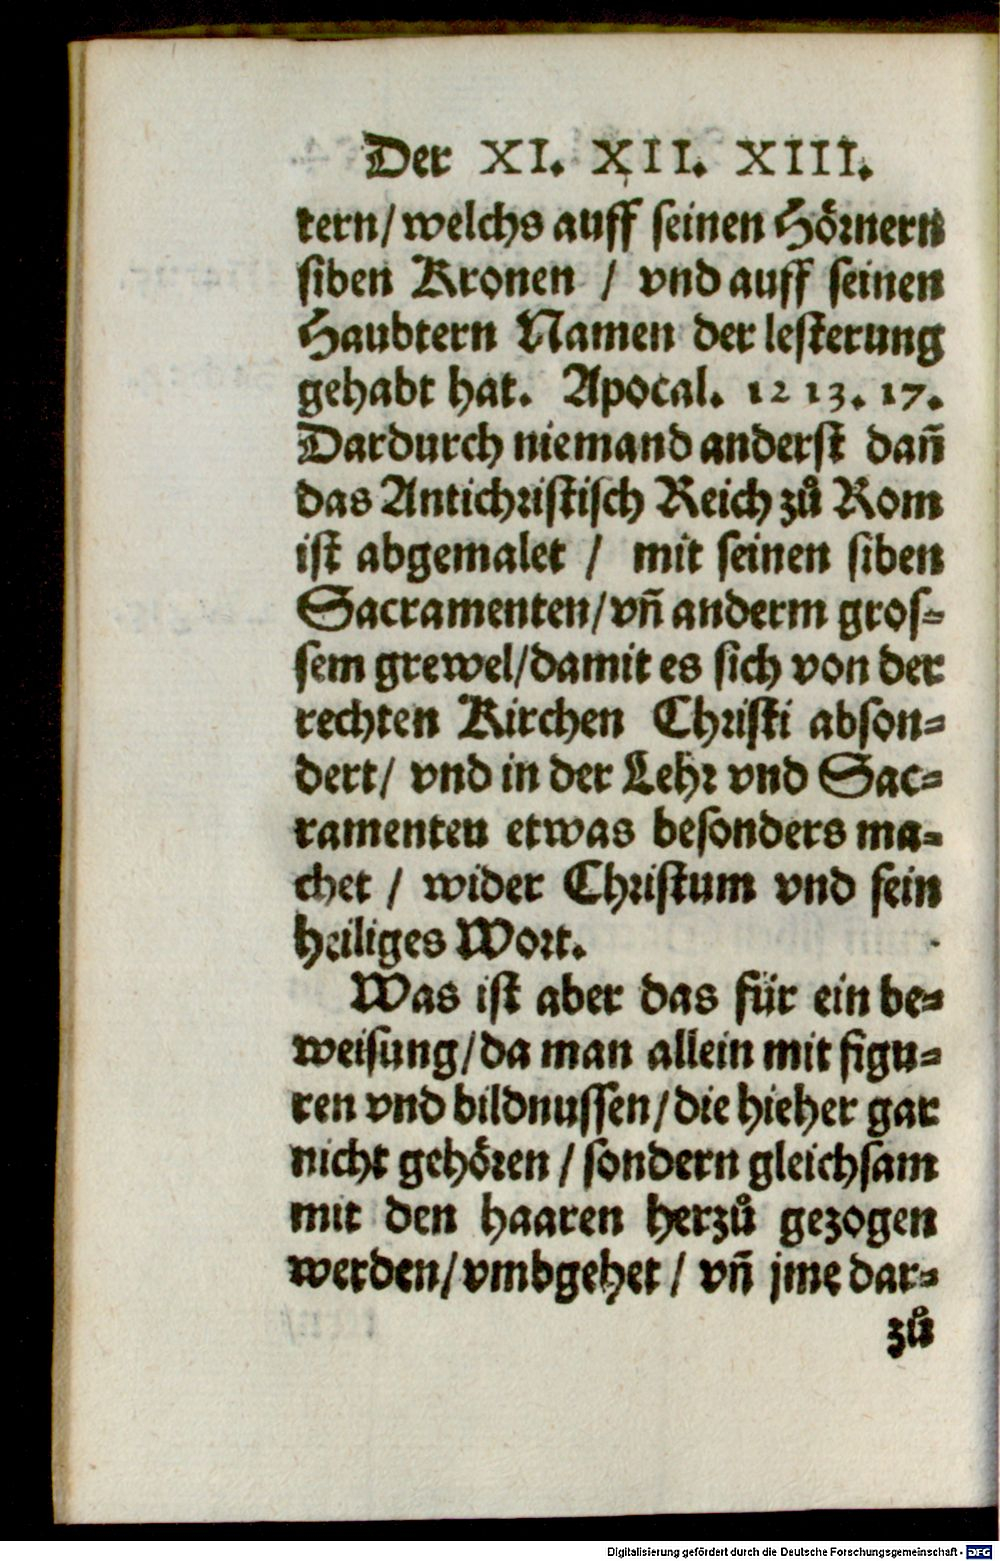 Der XI. XII. XIII.
tern/ welchs auff seinen Hörnern
siben Kronen / vnd auff seinen
Haubtern Namen der lesterung
gehabt hat. Apocal. 12 13. 17.
Dardurch niemand anderst dañ
das Antichristisch Reich zů Rom
ist abgemalet / mit seinen siben
Sacramenten/ vñ anderm gros=
sem grewel/ damit es sich von der
rechten Kirchen Christi abson=
dert/ vnd in der Lehr vnd Sac=
ramenten etwas besonders ma=
chet / wider Christum vnd sein
heiliges Wort.
Was ist aber das für ein be=
weisung/ da man allein mit figu=
ren vnd bildnussen/ die hieher gar
nicht gehören / sondern gleichsam
mit den haaren herzů gezogen
werden/ vmbgehet / vñ jme dar=
zů
Digitalisierung gefördert durch die Deutsche Forschungsgemeinschaft - DFG